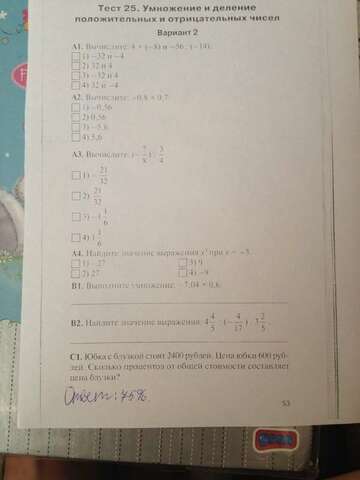 Тест 25. Умножение и деление
положительных и отрицательных чисел
Вариант 2
А1. Вычислите: 4 · (−8) и −56 : (−14).
1) −32 и −4
2) 32 и 4
3) −32 и 4
4) 32 и −4
А2. Вычислите: −0,8 · 0,7.
1) −0,56
2) 0,56
3) −5,6
4) 5,6
А3. Вычислите: (−7/8) : 3/4
1) −21/32
2) 21/32
3) −1 1/6
4) 1 1/6
А4. Найдите значение выражения x³ при x = −3.
1) −27 3) 9
2) 27 4) −9
В1. Выполните умножение: −7,04 · 0,6.
В2. Найдите значение выражения: 4 4/5 · (−4/17) · 3 2/5.
С1. Юбка с блузкой стоят 2400 рублей. Цена юбки 600 руб-
лей. Сколько процентов от общей стоимости составляет
цена блузки?
Ответ: 75%
53